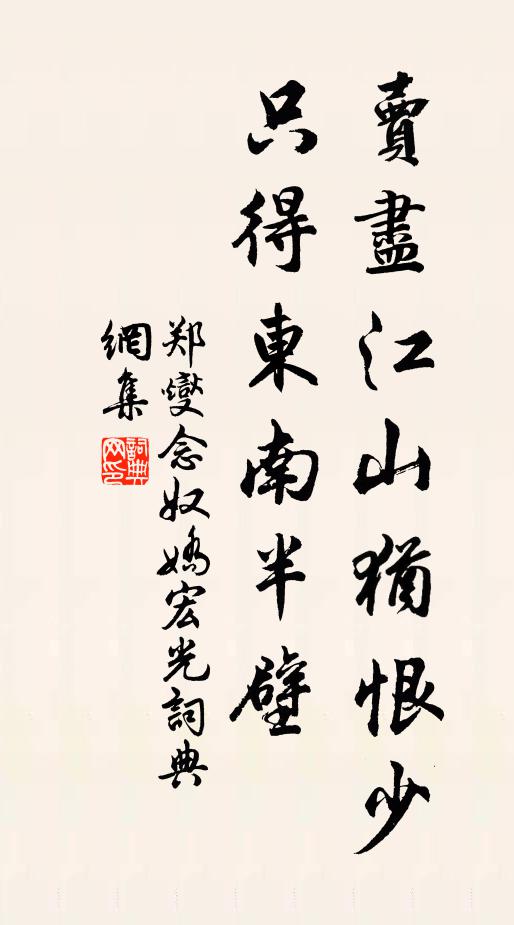 賣盡江山猶恨少
只得東南半壁
郑燮念奴嬌宏光詞典
網集
詞典
网印